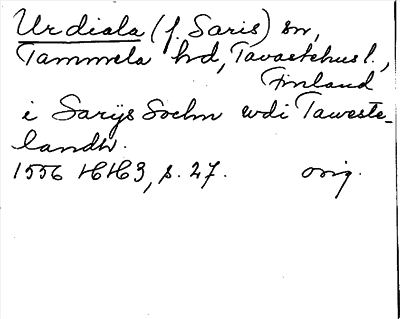 Urdiala (f. Saris) sn,
Tammela hd, Tavastehus l.,
Finland
i Sarijs Sochn wdi Taweste-
landh.
1556 HH 3, s. 27. orig.